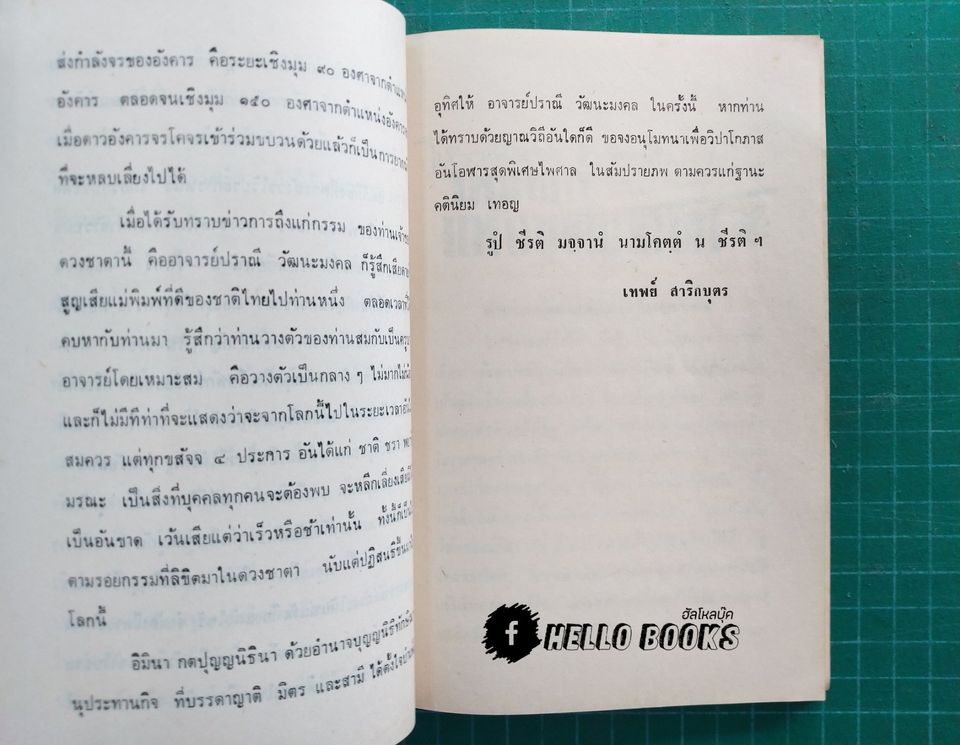 ส่งกำลังจรของอังคาร คือระยะเชิงมุม ๙๐ องศาจากตำแหน่ง
อังคาร ตลอดจนเชิงมุม ๑๕๐ องศาจากตำแหน่งอังคาร
เมื่อดาวอังคารจรโคจรเข้าร่วมขบวนด้วยแล้วก็เป็นการยาก
ที่จะหลบเลี่ยงไปได้
เมื่อได้รับทราบข่าวการถึงแก่กรรม ของท่านเจ้าของ
ดวงชาตานี้ คืออาจารย์ปราณี วัฒนะมงคล ก็รู้สึกเสียดาย
สูญเสียแม่พิมพ์ที่ดีของชาติไทยไปท่านหนึ่ง ตลอดเวลาที่
คบหากับท่านมา รู้สึกว่าท่านวางตัวของท่านสมกับเป็นครูบา
อาจารย์โดยเหมาะสม คือวางตัวเป็นกลาง ๆ ไม่มากไม่น้อย
และก็ไม่มีทีท่าที่จะแสดงว่าจะจากโลกนี้ไปในระยะเวลาอัน
สมควร แต่ทุกขสัจจ ๔ ประการ อันได้แก่ ชาติ ชรา พยาธิ
มรณะ เป็นสิ่งที่บุคคลทุกคนจะต้องพบ จะหลีกเลี่ยงเสีย
เป็นอันขาด เว้นเสียแต่ว่าเร็วหรือช้าเท่านั้น ทั้งนี้ก็เป็น
ตามรอยกรรมที่ลิขิตมาในดวงชาตา นับแต่ปฏิสนธิขึ้นมา
โลกนี้
อิมินา กตปุญญนิธินา ด้วยอำนาจบุญญนิธิทักษิณา
นุประทานกิจ ที่บรรดาญาติ มิตร และสามี ได้ตั้งใจ
อุทิศให้ อาจารย์ปราณี วัฒนะมงคล ในครั้งนี้ หากท่าน
ได้ทราบด้วยญาณวิถีอันใดก็ดี ขอจงอนุโมทนาเพื่อวิปาโกภาส
อันโอฬารสุดพิเศษไพศาล ในสัมปรายภพ ตามควรแก่ฐานะ
คตินิยม เทอญ
รูปํ ชีรติ มจฺจานํ นามโคตฺตํ น ชีรติ ฯ
เทพย์ สาริกบุตร
ฮัลโหลบุ๊ค
f HELLO BOOKS